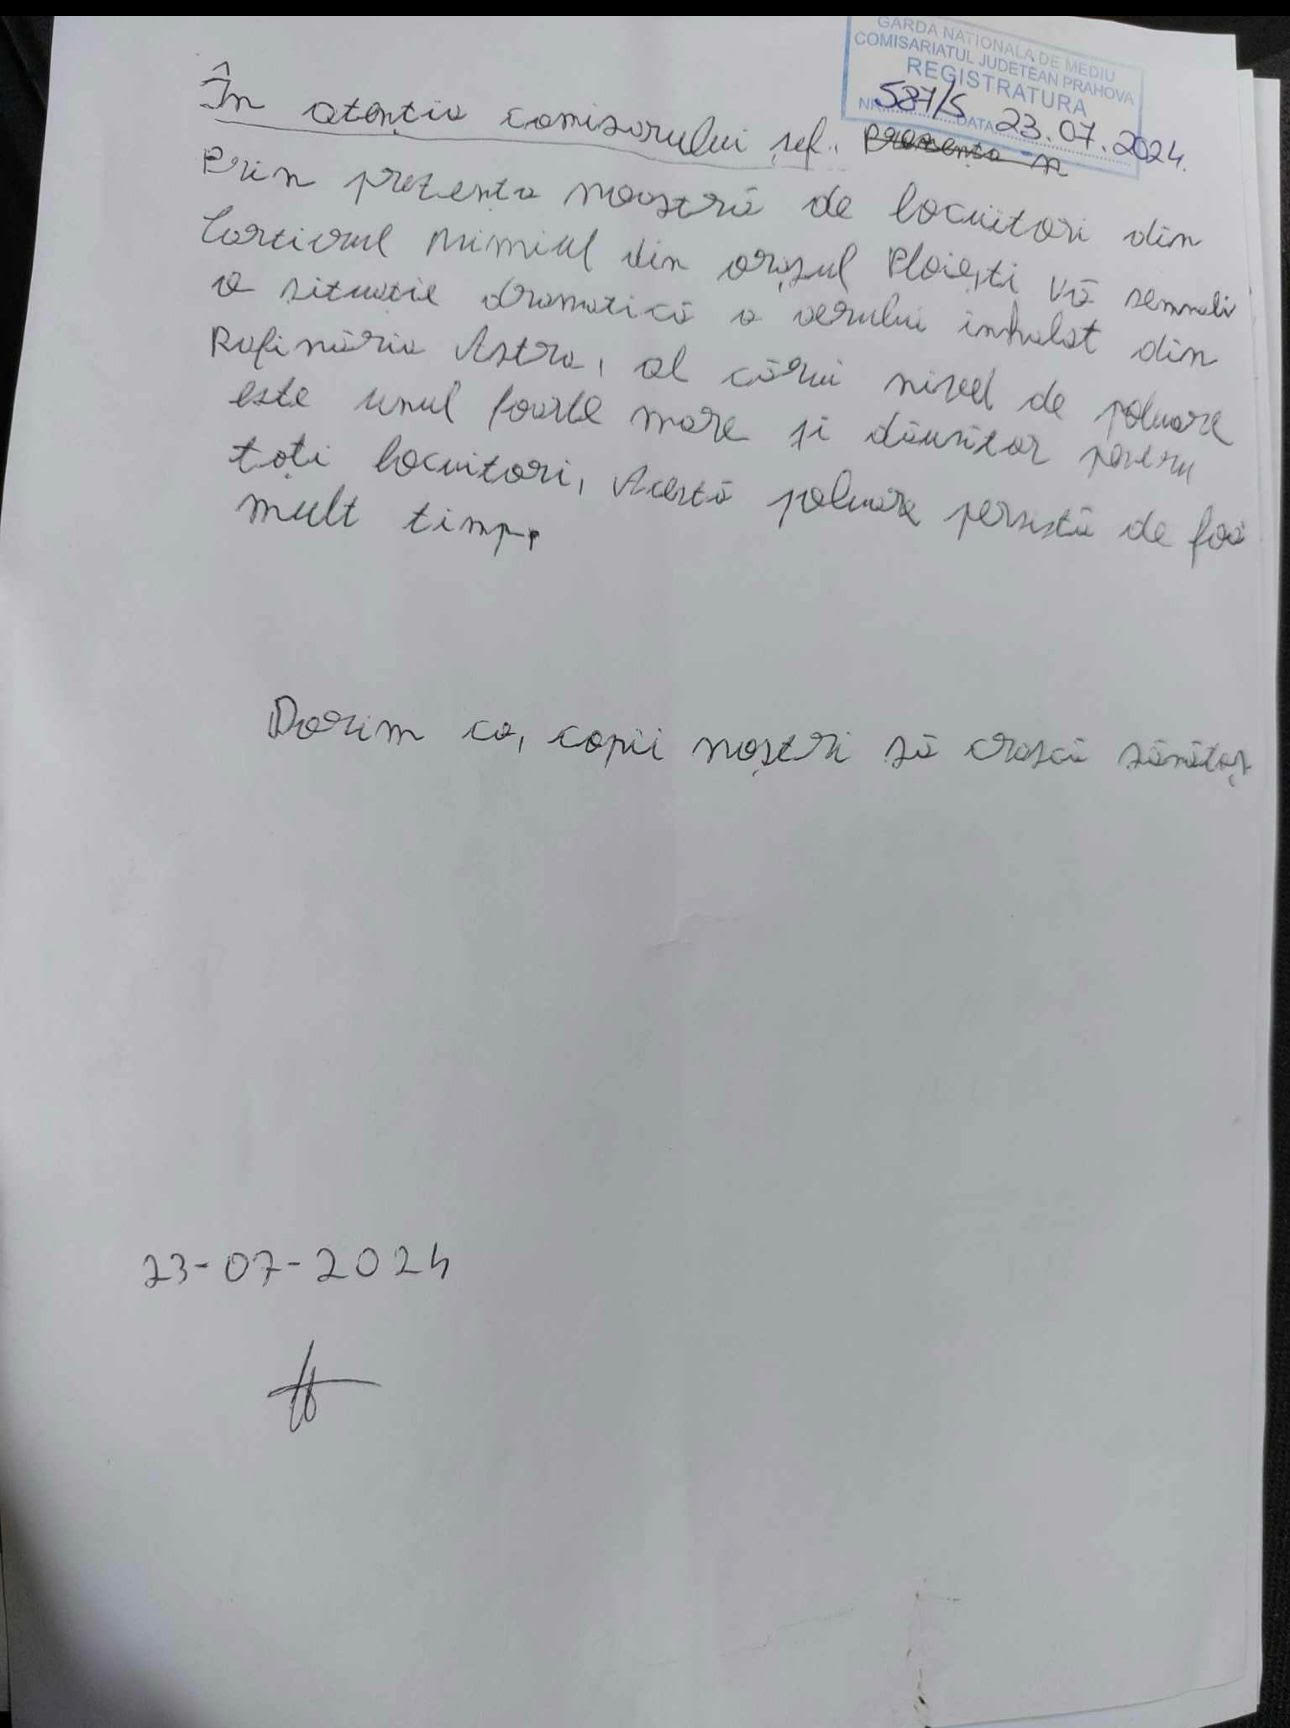 GARDA NATIONALA DE MEDIU
COMISARIATUL JUDETEAN PRAHOVA
REGISTRATURA
NR. 587/S DATA 23.07.2024.
În atenția comisorului șef..
Prin prezenta noastră de locuitori din
Cartierul Mimiul din orașul Ploiești vă semnali
o situație dramatică a aerului inhalat din
Rafinăria Astra, al cărui nivel de poluare
este unul foarte mare și dăunător pentru
toți locuitori, Acestă poluare persistă de foa
mult timp.
Dorim ca, copii noștri să crască sănătoș
23-07-2024